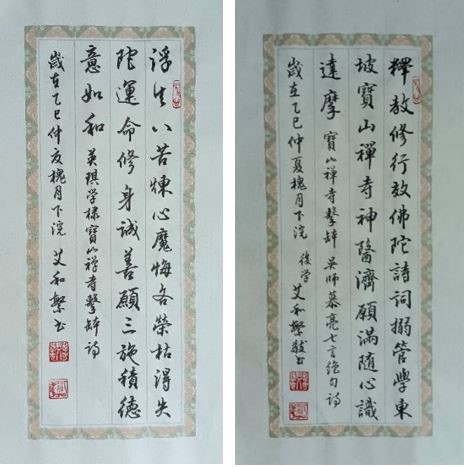 浮生八苦煉心魔悔吝榮枯得失
陀運命修身誠善願三施積德
意如和 英琪学棣寶山禅寺擊缽詩
歲在乙巳仲夏槐月下浣 艾和繁书
釋教修行效佛陀詩詞搦管學東
坡寶山禪寺神醫濟願滿隨心識
達摩 寶山禅寺擊缽 吳师慕亮七言绝句诗
歲在乙巳仲夏槐月下浣 後学 艾和繁敬书